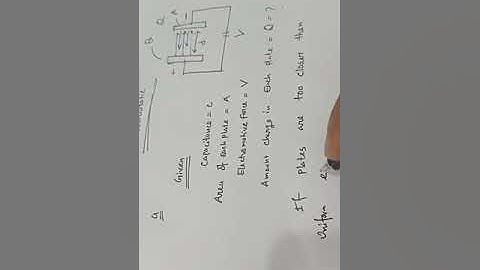 Q
Given
Capacitance = C
Area of each plate = A
Electromotive Force = V
Amount charge in Each plate = Q = ?
If plates are too closer then
Uniform
B
Q
A
d
V
+
-